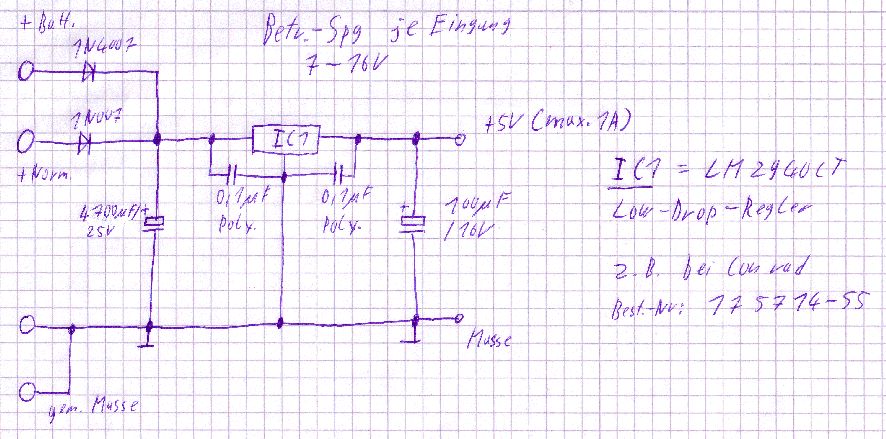 + Batt.
Betr.-Spg je Eingang
7-16V
1N4007
1N007
+5V (max. 1A)
IC1
+Norm.
IC1 = LM2940CT
Low-Drop-Regler
0,1µF
Poly.
0,1µF
Poly.
+
4700µF/
25V
+
100µF
/16V
z.B. bei Conrad
Best.-Nr: 175714-55
Masse
gem. Masse